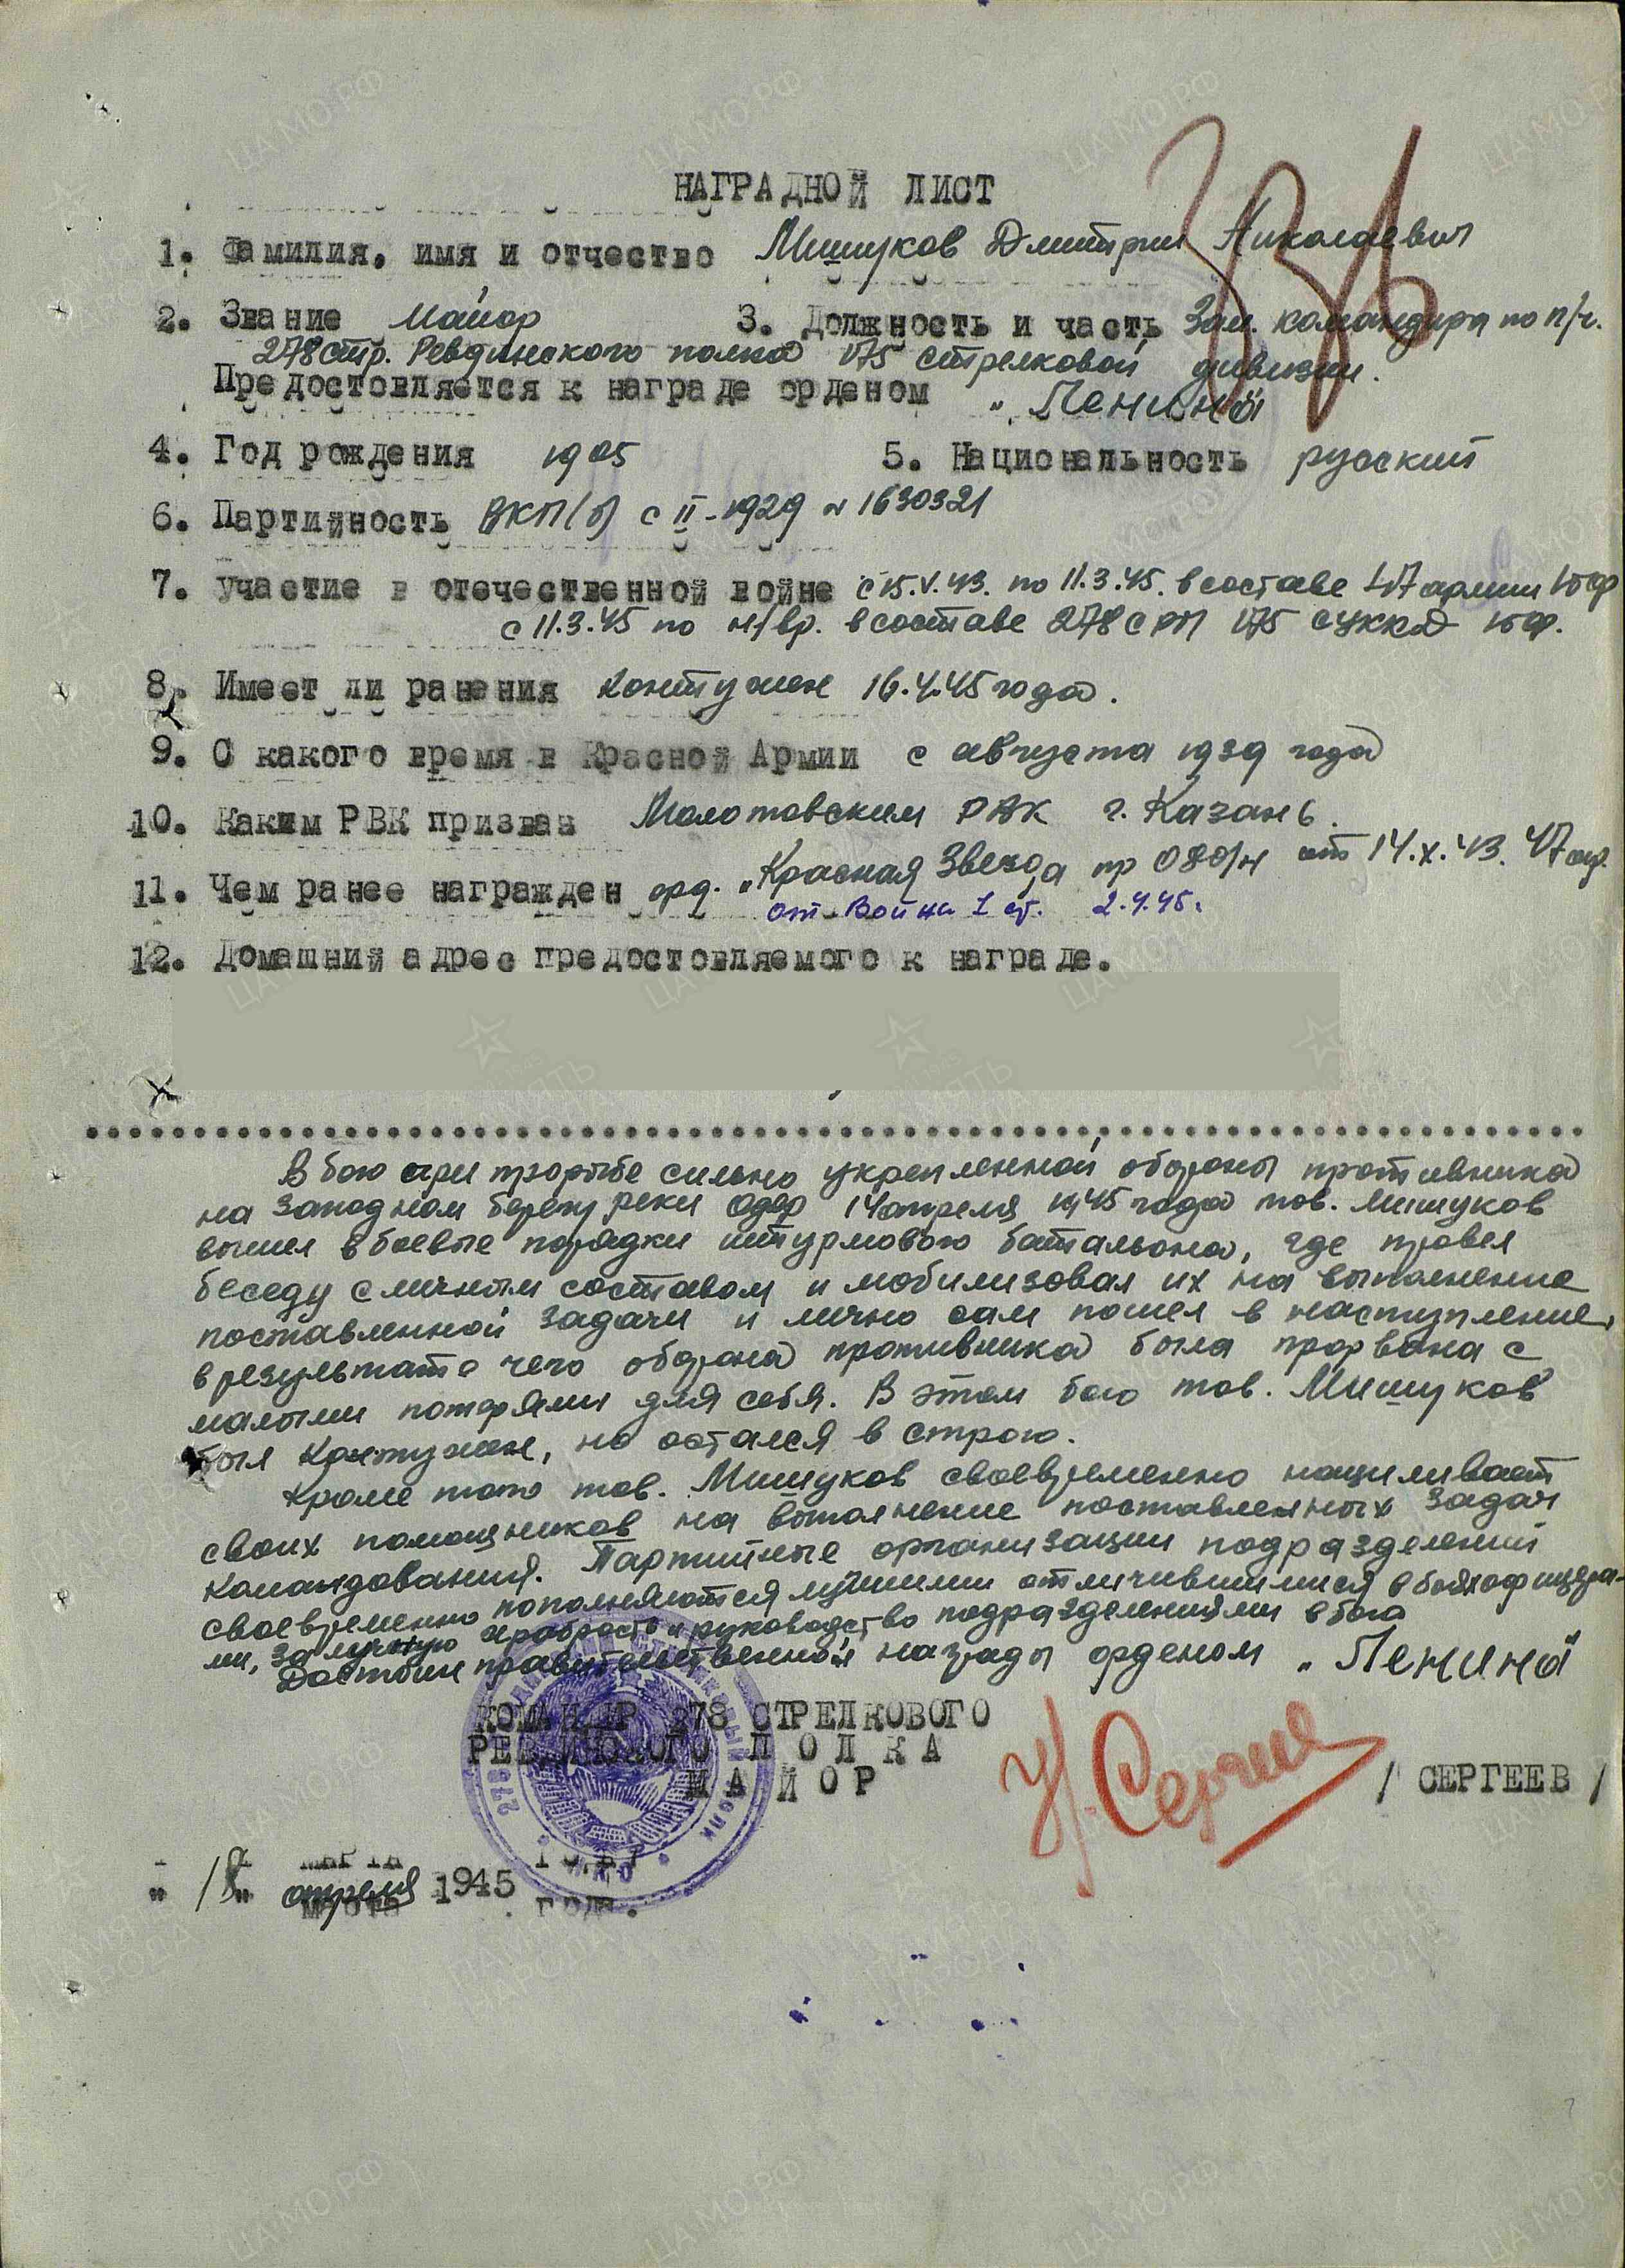 НАГРАДНОЙ ЛИСТ
1. Фамилия, имя и отчество Мишуков Дмитрий Николаевич
2. Звание Майор 3. Должность и часть Зам. командира по п/ч.
278 стр. Ревдинского полка 175 стрелковой дивизии.
Предостовляется к награде орденом „Ленина"
4. Год рождения 1905 5. Национальность русский
6. Партийность ВКП(б) с II-1929 № 1630321
7. участие в отечественной войне с 15.V.43. по 11.3.45. в составе 47 армии 1бф
с 11.3.45 по н/вр. в составе 278 СРП 175 СУККД 1бф.
8. Имеет ли ранения контужен 16.4.45 года.
9. С какого время в Красной Армии с августа 1939 года
10. Каким РВК призван Молотовским РВК г. Казань.
11. Чем ранее награжден орд. „Красная Звезда пр 080/н от 14.X.43. 47 ар.
от. Войны 1 ст. 2.4.45.
12. Домашний адрес предостовляемого к награде.
В бою при прорыве сильно укрепленной обороны противника
на западном берегу реки Одер 14 апреля 1945 года тов. Мишуков
вышел в боевые порядки штурмового батальона, где провел
беседу с личным составом и мобилизовал их на выполнение
поставленной задачи и лично сам пошел в наступление,
в результате чего оборона противника была прорвана с
малыми потерями для себя. В этом бою тов. Мишуков
был контужен, но остался в строю.
Кроме того тов. Мишуков своевременно нацеливает
своих помощников на выполнение поставленных задач
командования. Партийные организации подразделений
своевременно пополняются лучшими отличившимися в боях офицера-
ми, за личную храбрость и руководство подразделениями в бою
Достоин правительственной награды орденом „Ленина"
КОМАНДИР 278 СТРЕЛКОВОГО
РЕВДИНСКОГО ПОЛКА
МАЙОР Н. Сергеев / СЕРГЕЕВ /
"18" апреля 1945 года.